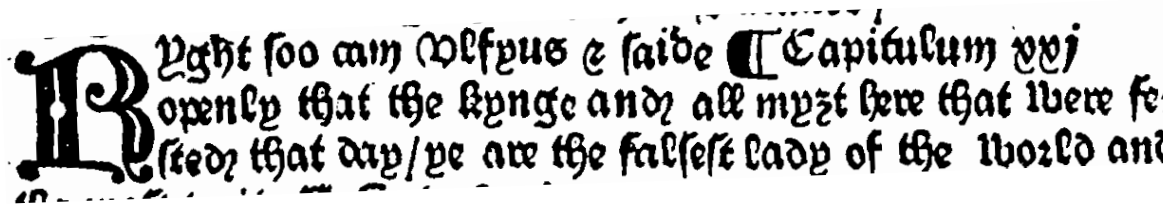 RYght soo cam Vlfyus & saide ¶ Capitulum xxj
openly that the kynge and all myȝt here that were fe-
sted that day/ye are the falsest lady of the world and